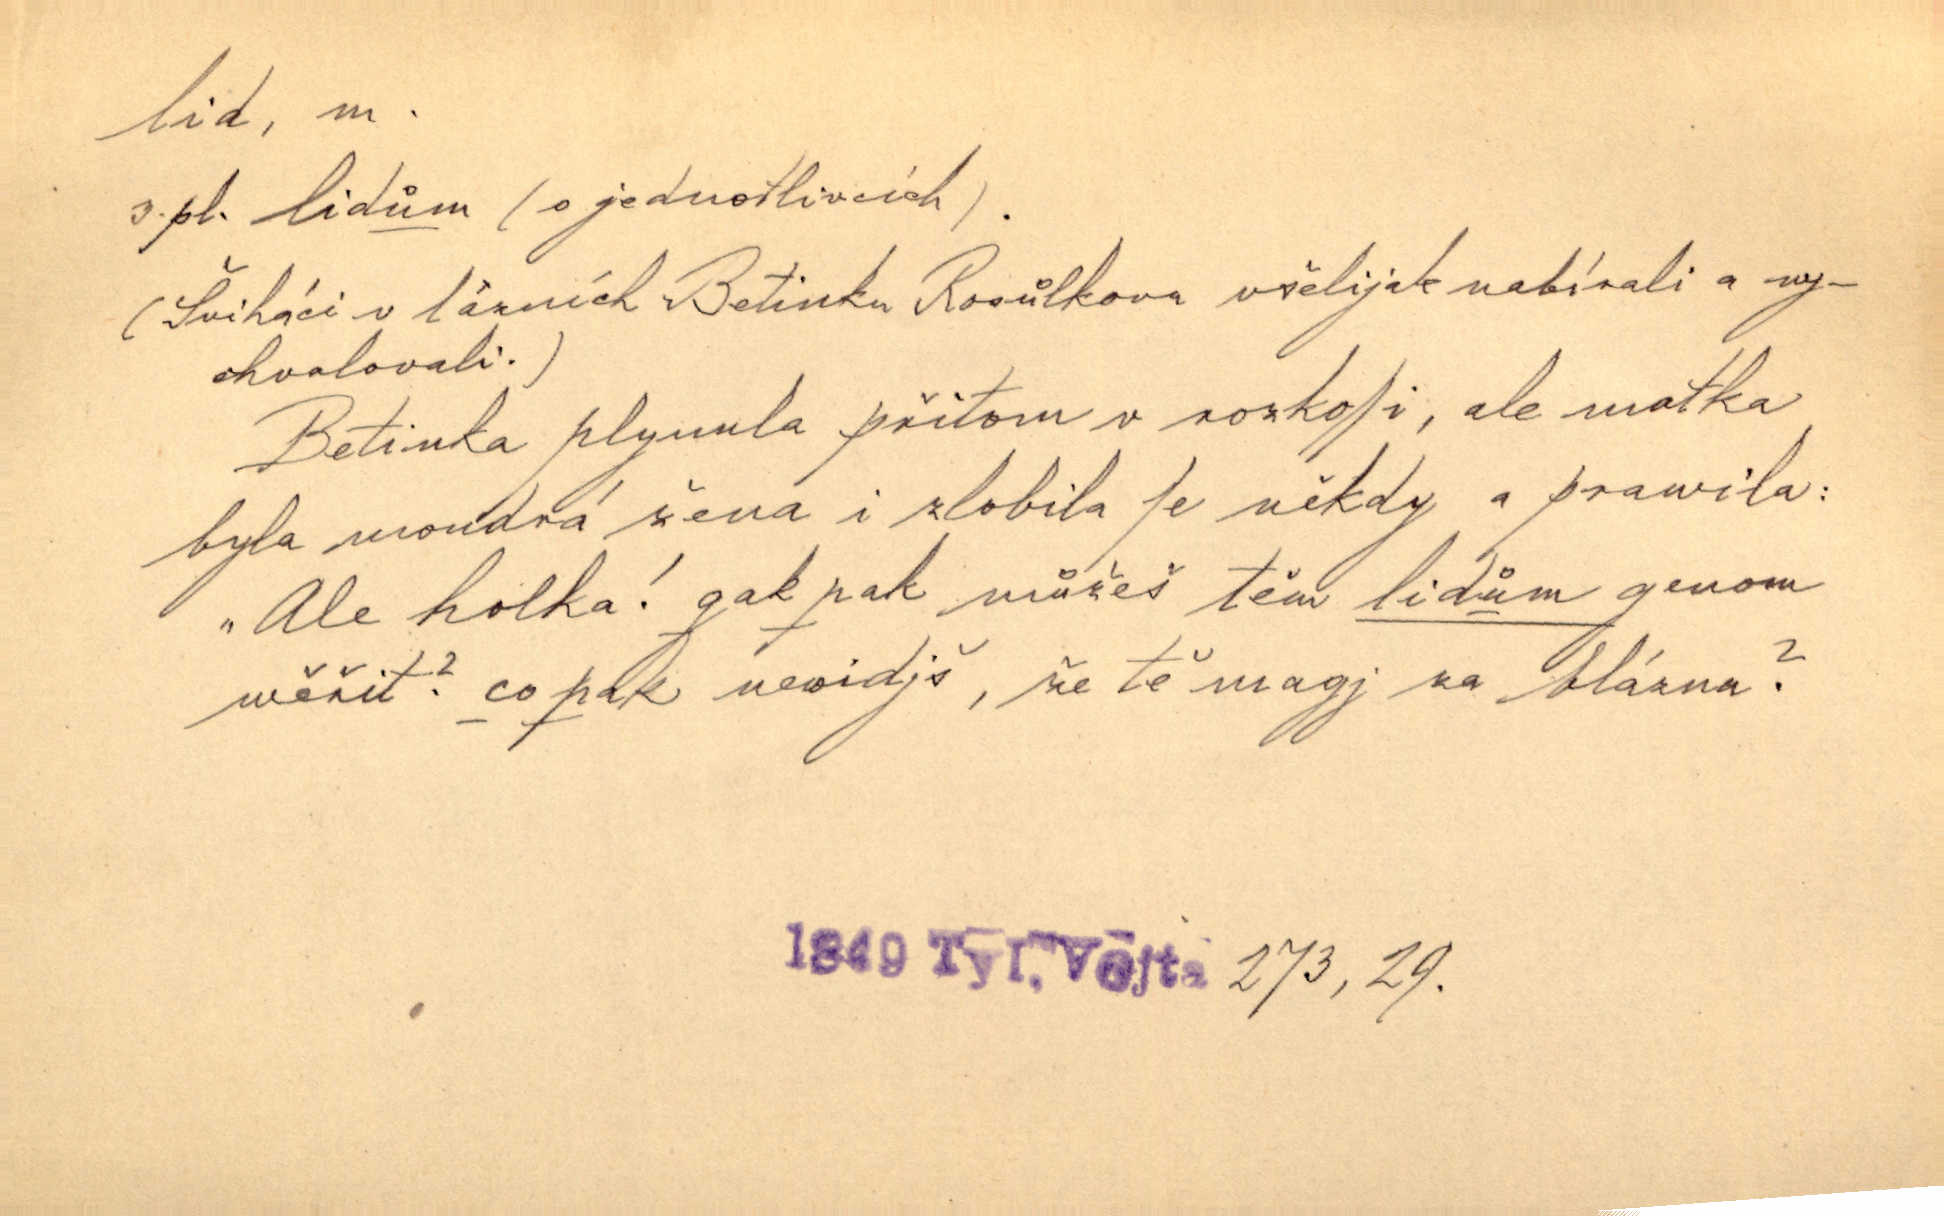 lid, m.
3. pl. lidům (o jednotlivcích).
(Šviháci v lázních Betinku Rosůlkovu všelijak nabírali a vy-
chvalovali.)
Betinka plynula přitom v rozkoſi, ale matka
byla moudrá žena i zlobila ſe někdy a prawila:
"Ale holka! gak pak můžeš těm lidům genom
wěřit? co pak newidjš, že tě magj za blázna?
1849 Tyl, Vojta 273, 29.